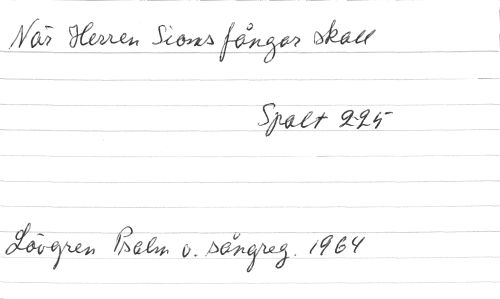 När Herren Sions fångar skall
Spalt 225
Lövgren Psalm o. sångreg. 1964